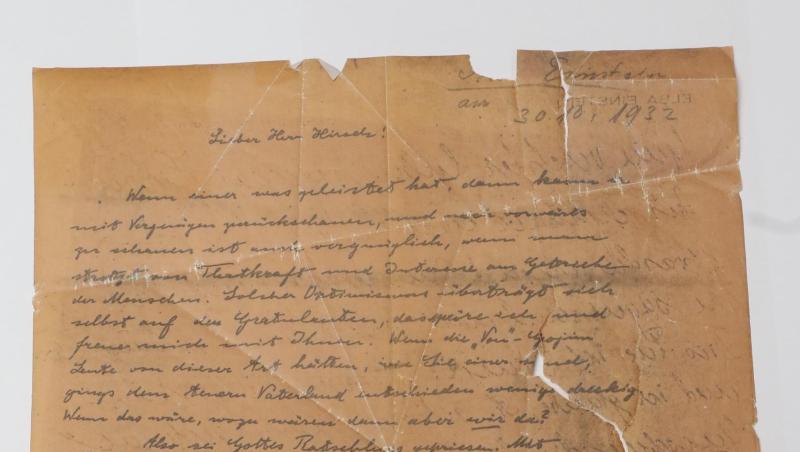 Einstein
am 30.10.1932
ELSA EINSTEIN
Lieber Herr Hirsch!
Wenn einer was geleistet hat, dann kann er
mit Vergnügen zurückschauen, und nach vorwärts
zu schauen ist auch vergnüglich, wenn man
strotzt von Thatkraft und Interesse am
der Menschen. Solcher Optimismus überträgt sich
selbst auf den Gratulanten, das spüre ich, und
freue mich mit Ihnen. Wenn die „Von"-Gojim
Leute von dieser Art hätten, wie Sie einer sind,
gings dem teuern Vaterland entschieden weniger dreckig
Wenn das wäre, wozu wären dann aber wir da?
Also sei Gottes Ratschluss gepriesen. Mit